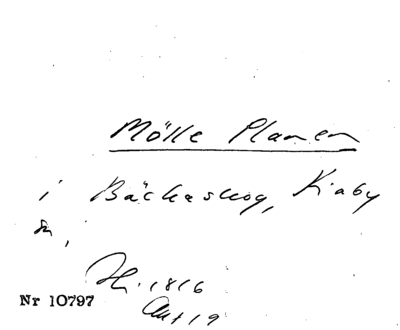 Mölle Planen
i Bäckaskog, Kiaby
sn,
1816
Nr 10797
Akt 19